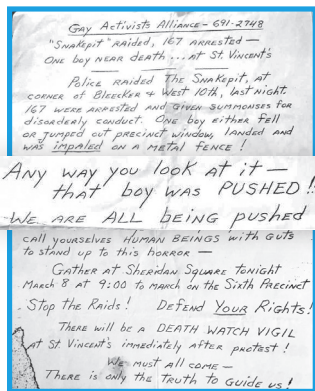 GAY ACTIVISTS ALLIANCE - 691-2748
"SNAKEPIT" RAIDED, 167 ARRESTED —
ONE BOY NEAR DEATH ... AT ST. VINCENT'S
POLICE RAIDED THE SNAKEPIT, AT
CORNER OF BLEECKER + WEST 10TH, LAST NIGHT.
167 WERE ARRESTED AND GIVEN SUMMONSES FOR
DISORDERLY CONDUCT. ONE BOY EITHER FELL
OR JUMPED OUT PRECINCT WINDOW, LANDED AND
WAS IMPALED ON A METAL FENCE!
ANY WAY YOU LOOK AT IT —
THAT BOY WAS PUSHED!!
WE ARE ALL BEING PUSHED
CALL YOURSELVES HUMAN BEINGS WITH GUTS
TO STAND UP TO THIS HORROR —
GATHER AT SHERIDAN SQUARE TONIGHT
MARCH 8 AT 9:00 TO MARCH ON THE SIXTH PRECINCT
STOP THE RAIDS! DEFEND YOUR RIGHTS!
THERE WILL BE A DEATH WATCH VIGIL
AT ST VINCENT'S IMMEDIATELY AFTER PROTEST!
WE MUST ALL COME —
THERE IS ONLY THE TRUTH TO GUIDE US!